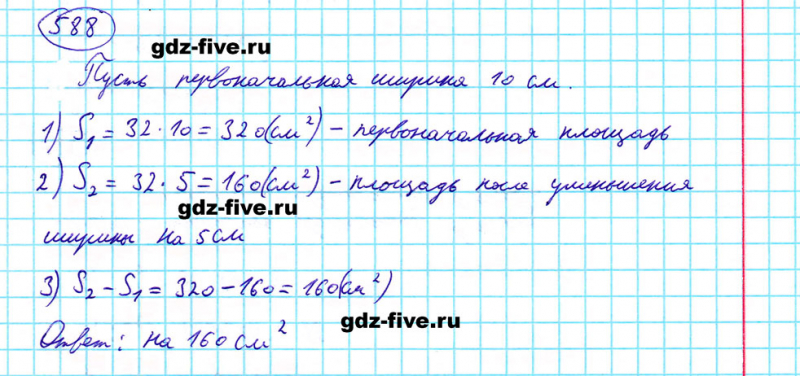 588
gdz-five.ru
Пусть первоначальная ширина 10 см.
1) S₁ = 32 · 10 = 320(см²) – первоначальная площадь
2) S₂ = 32 · 5 = 160(см²) – площадь после уменьшения
gdz-five.ru
ширины на 5см
3) S₂ – S₁ = 320 – 160 = 160(см²)
gdz-five.ru
Ответ: на 160 см²